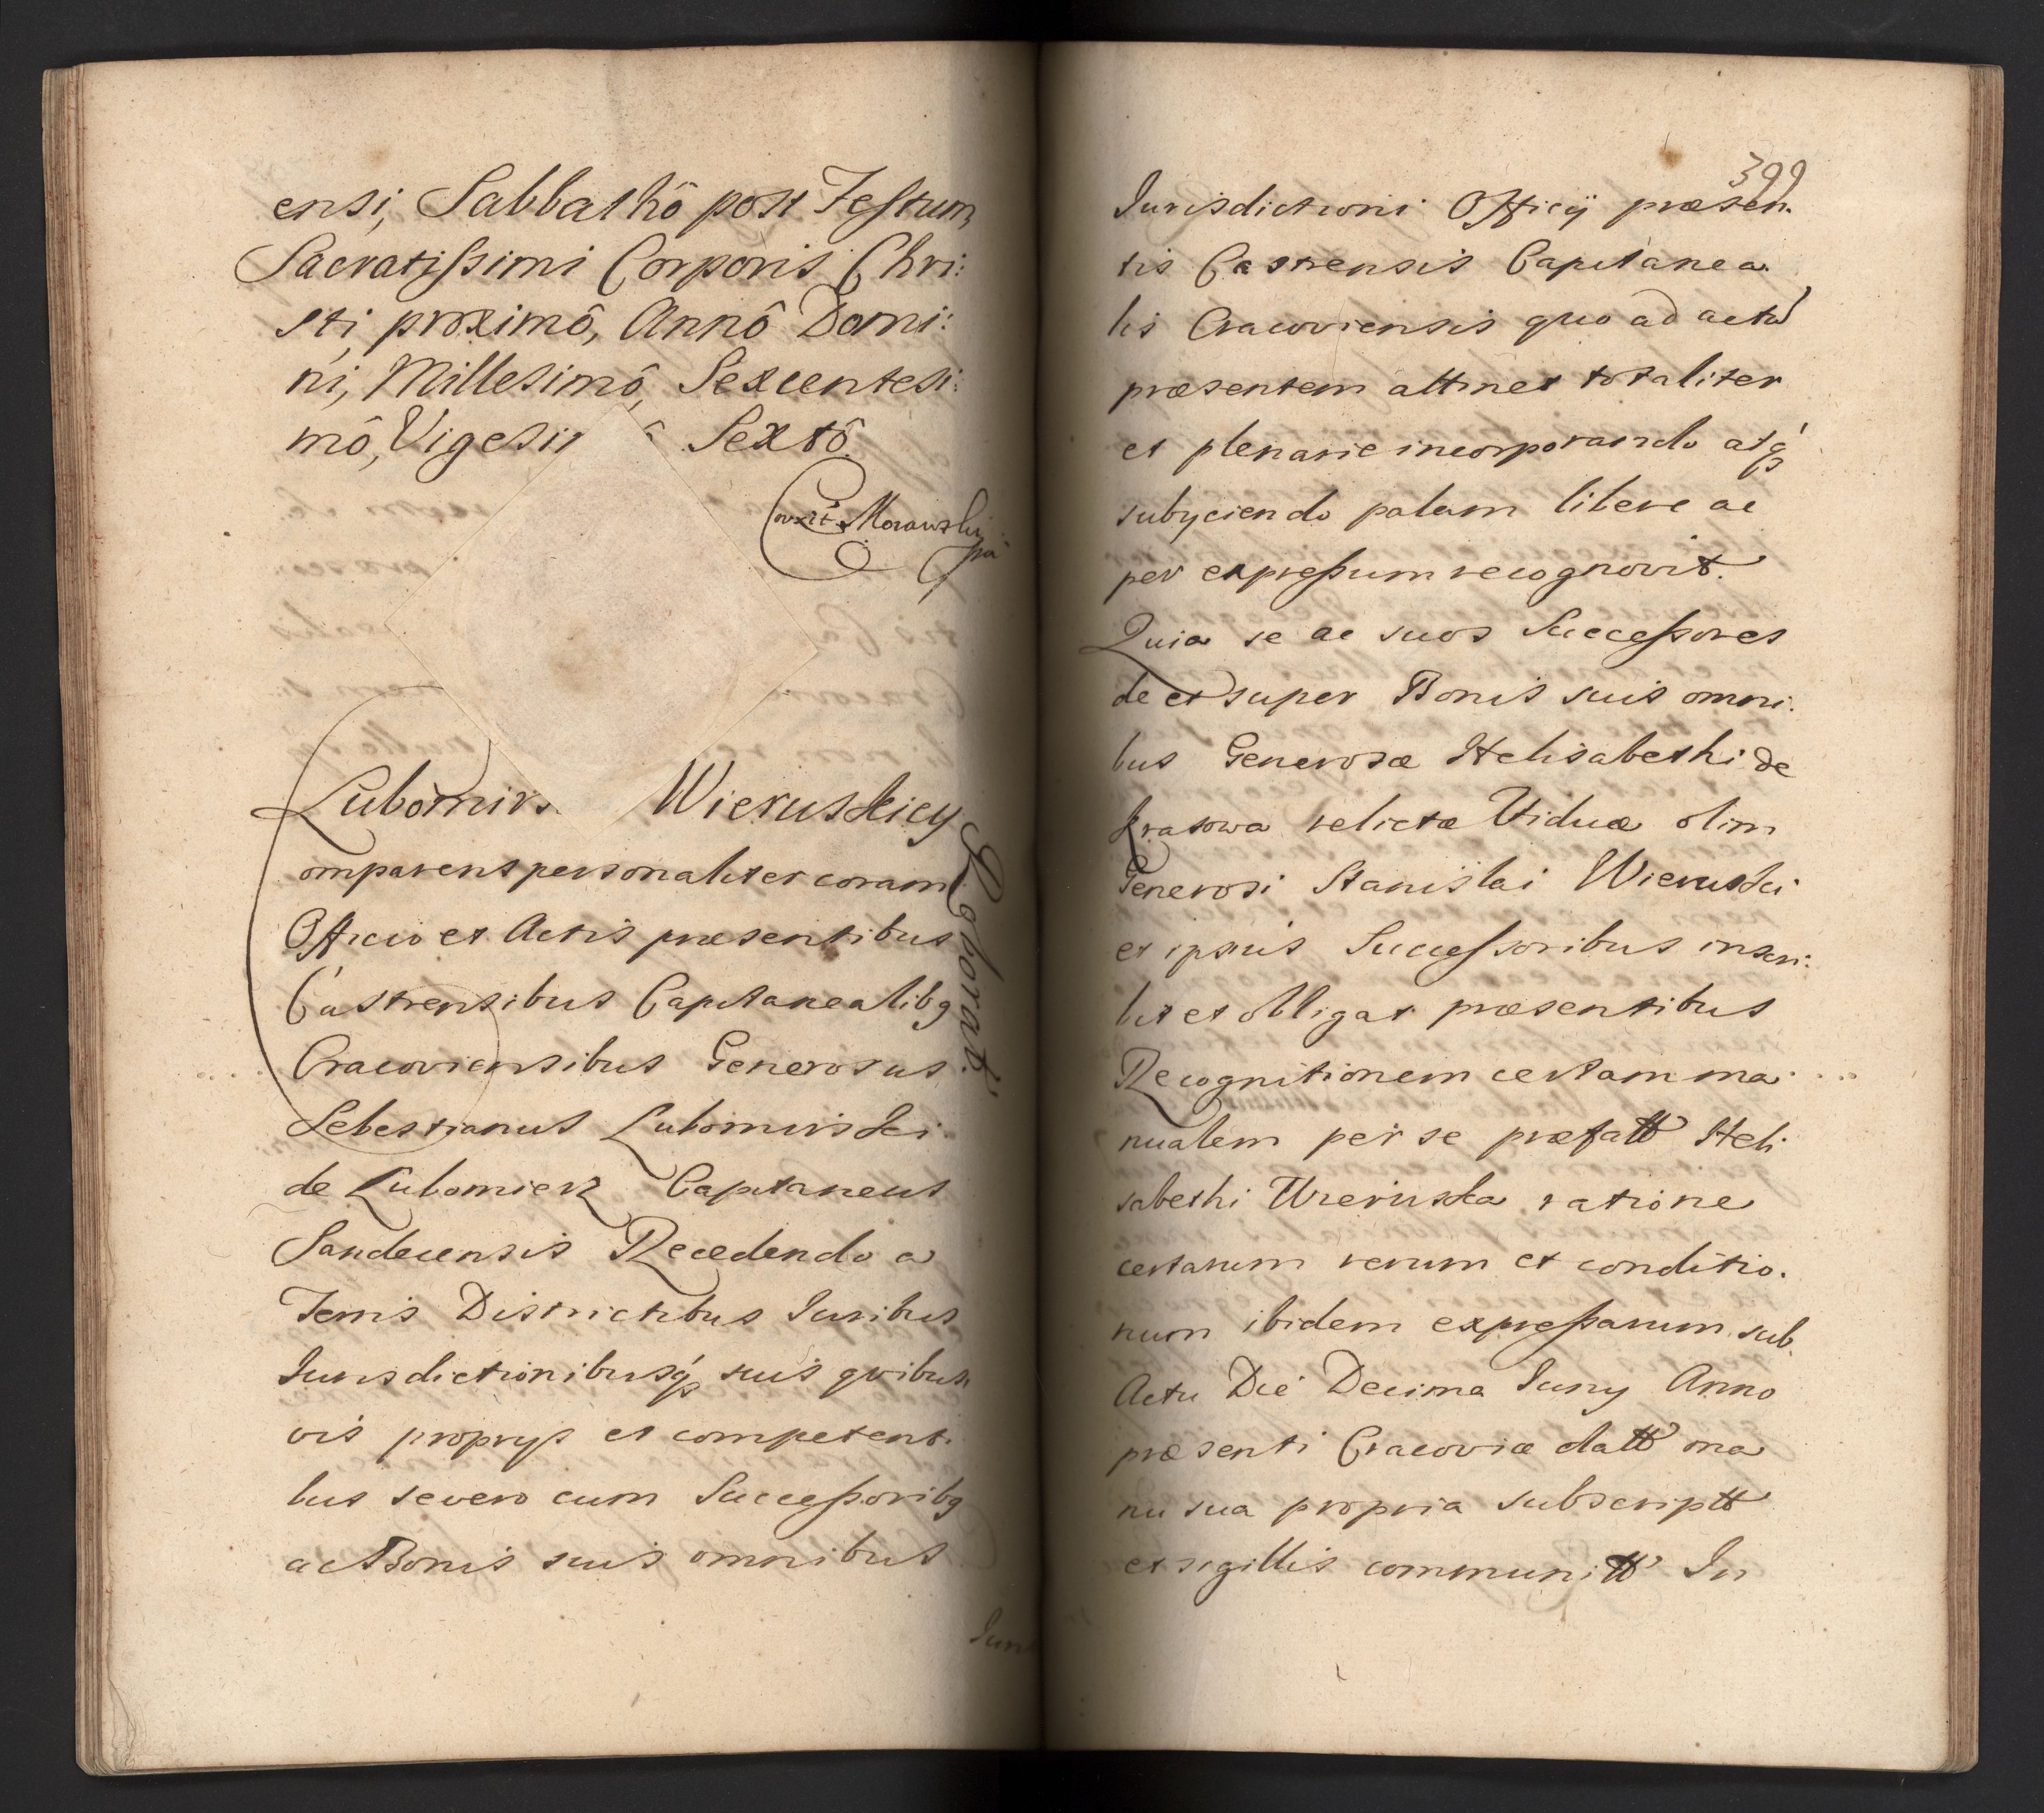 ensi, Sabbathô post Festum
Sacratissimi Corporis Chri:
sti proximô, Annô Domi:
ni, Millesimô, Sexcentesi:
mô, Vigesi Sextô.
Morawski
Lubomirs. Wieruskiey
Roborat.
omparens personaliter coram
Officio et Actis præsentibus
Castrensibus Capitanealibq
Cracoviensibus Generosus
Sebestianus Lubomirski
de Lubomierz Capitaneus
Sandecensis Recedendo a
Terris Districtibus Iuribus
Iurisdictionibusq suis quibus
vis proprys et competenti
bus se vero cum Successoribq
ac Bonis suis omnibus
399
Iurisdictioni Officij præsen.
tis Castrensis Capitanea
lis Cracoviensis quo ad actu
præsentem attinet totaliter
et plenarie incorporando atq
subyciendo palam libere ac
per expressum recognovit.
Quia se ac suos Successores
de et super Bonis suis omni.
bus Generosæ Helisabethi de
Krasowa relictæ Viduæ olim
Generosi Stanislai Wieruski
et ipsius Successoribus inscri:
bit et obligat præsentibus
Recognitionem certam ma
nualem per se præfatt Heli
sabethi Wieruska ratione
certarum rerum et conditio.
num ibidem expressarum sub
Actu Die Decima Iuny Anno
præsenti Cracoviæ datt ma
nu sua propria subscriptt
et sigillis communitt In